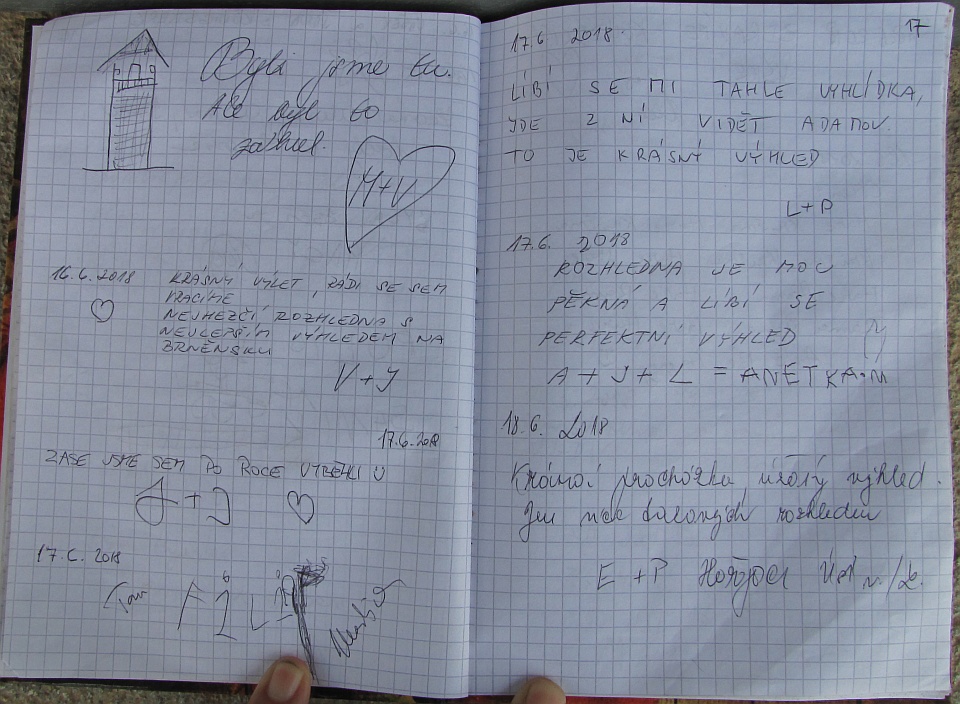 Byli jsme tu.
Ale byl to
záhul.
M+V
16.6.2018
KRÁSNÝ VÝLET, RÁDI SE SEM
VRACÍME
NEJHEZČÍ ROZHLEDNA S
NEJLEPŠÍM VÝHLEDEM NA
BRNĚNSKU
V+J
17.6.2018
ZASE JSME SEM PO ROCE VYBĚHLI
J+J
17.6.2018
Tom
17
17.6 2018.
LÍBÍ SE MI TAHLE VYHLÍDKA,
JDE Z NÍ VIDĚT ADAMOV.
TO JE KRÁSNÝ VÝHLED
L+P
17.6. 2018
ROZHLEDNA JE MOC
PĚKNÁ A LÍBÍ SE
PERFEKTNÍ VÝHLED
A + J + L = ANETKA.M
18.6. 2018
Krásná procházka, úžasný výhled.
Jen více takových rozhleden
E + P Ústí n/L.